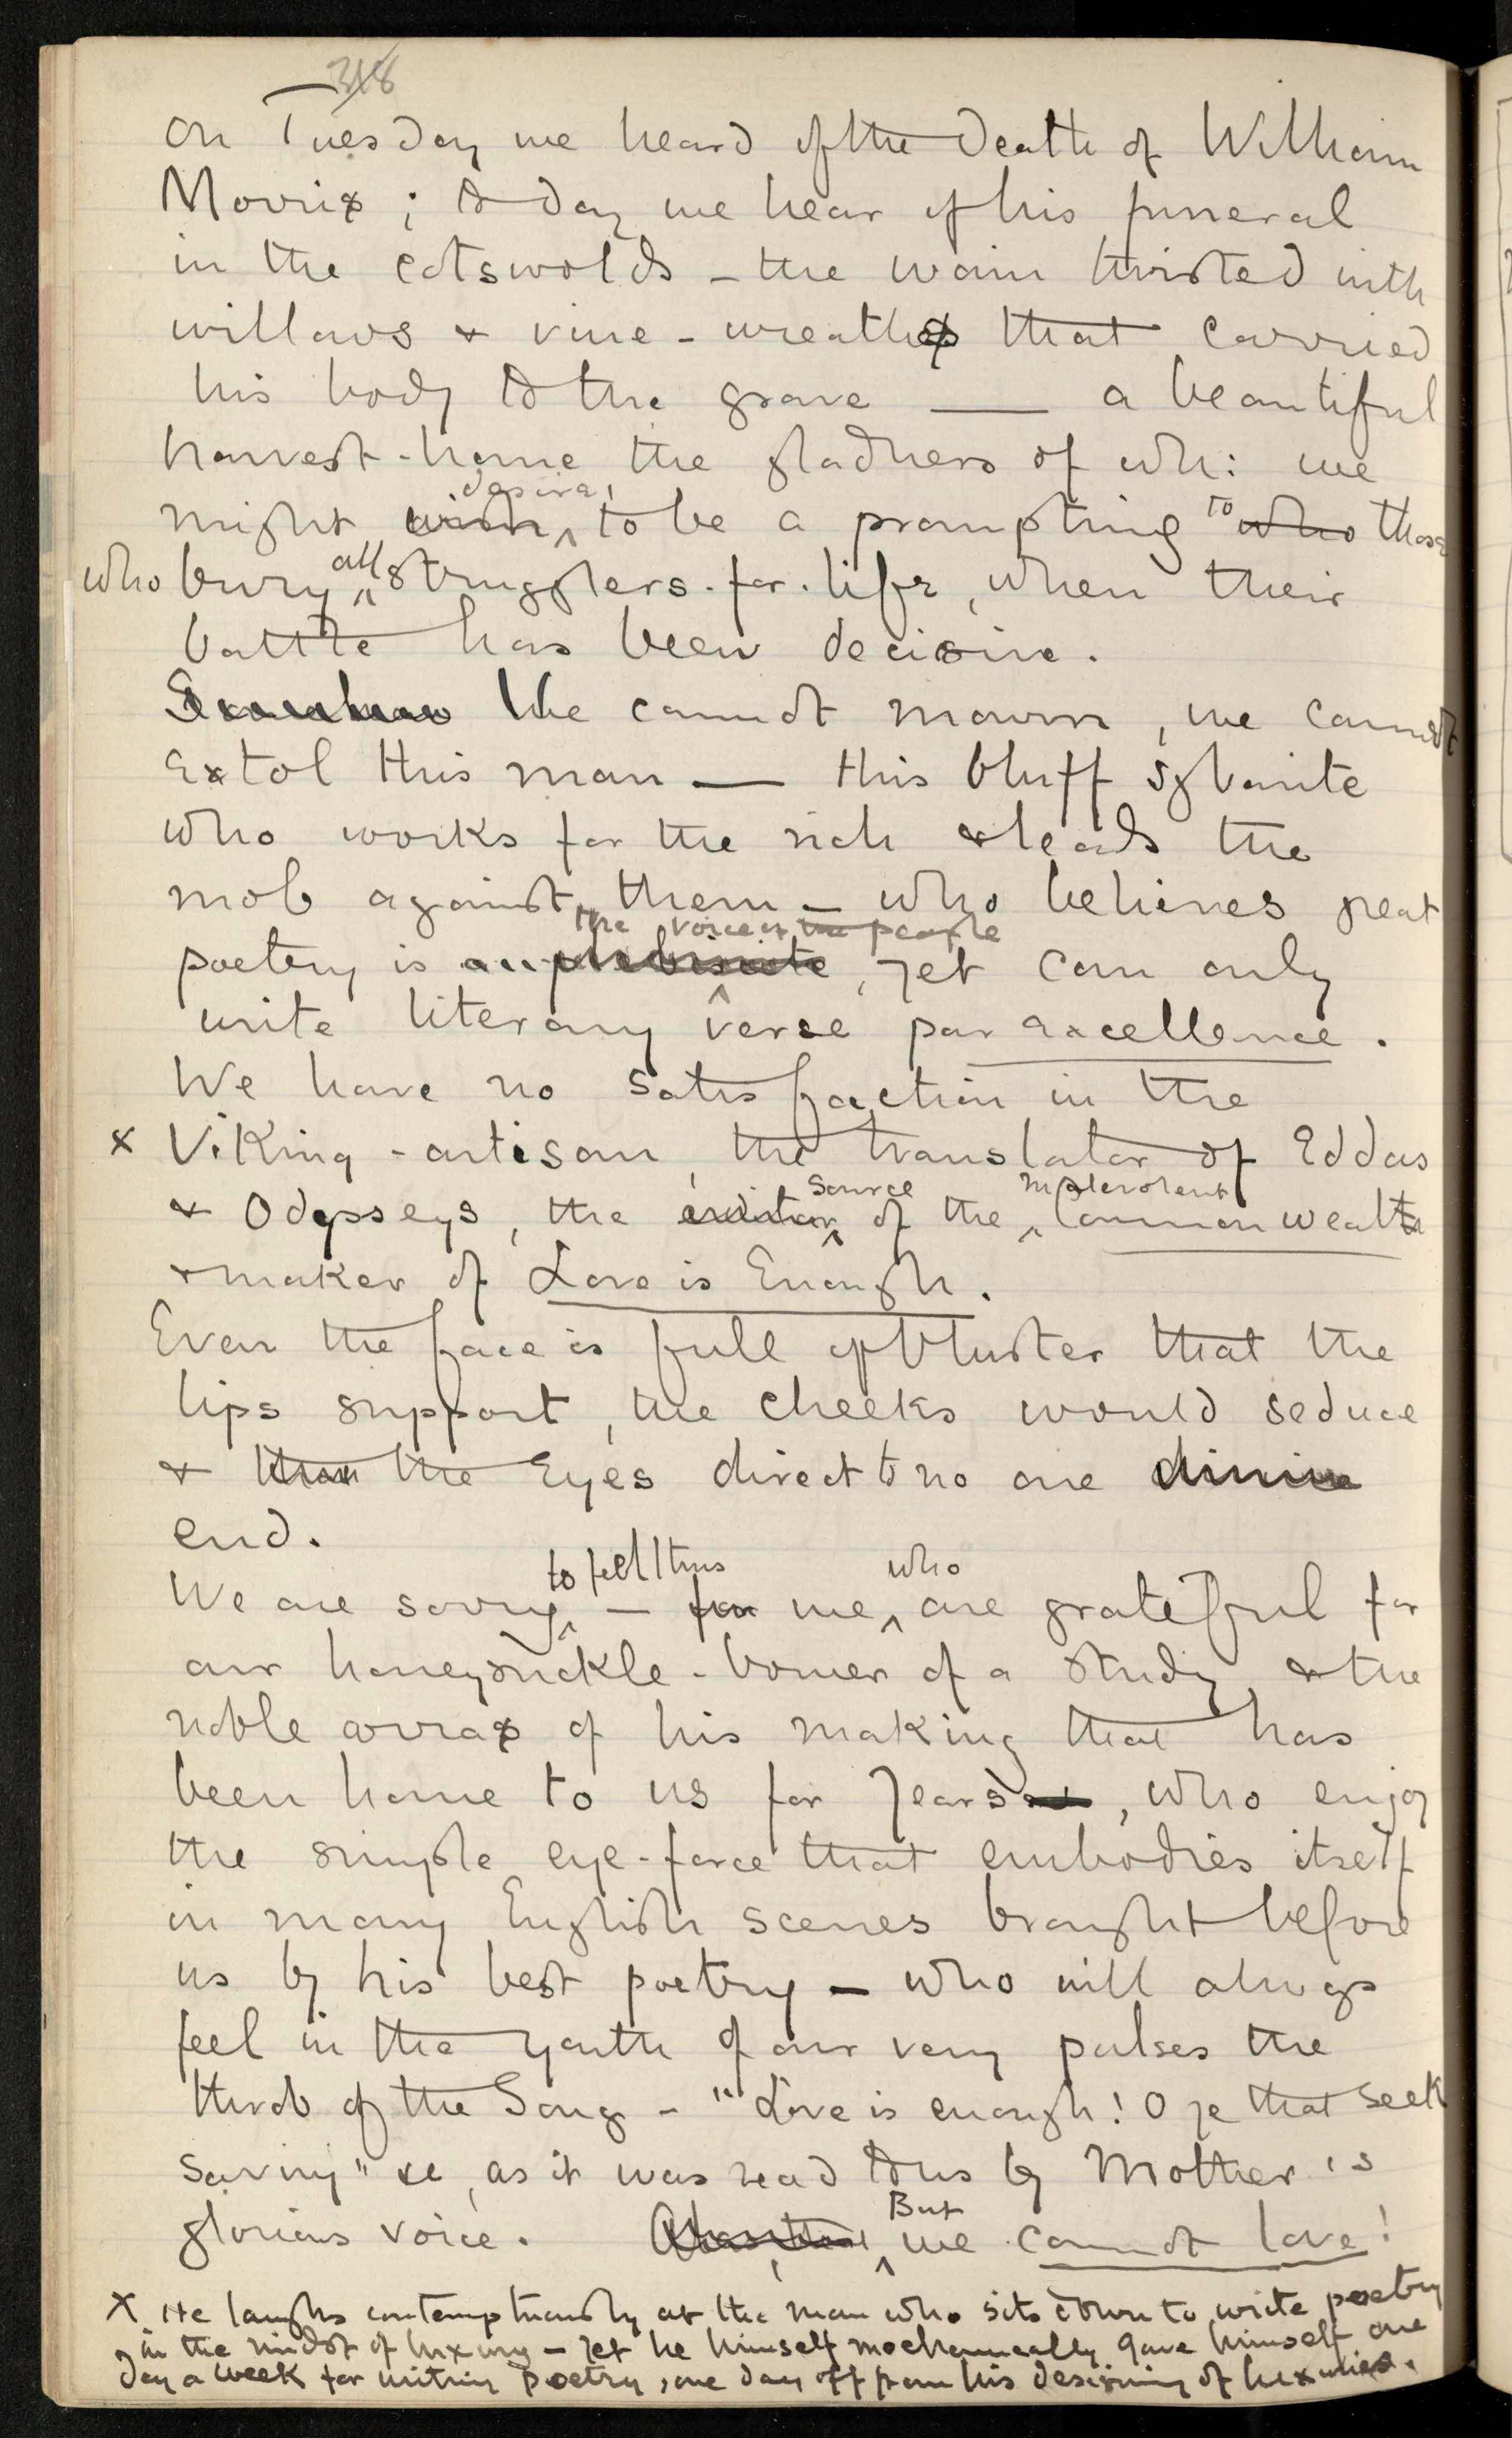 318
On Tuesday we heard of the death of William
Morris; to day we hear of his funeral
in the Cotswolds - the wain twisted with
willows & vine-wreaths that carried
his body to the grave — a beautiful
harvest-home the gladness of wh: we
desire,
might wish to be a prompting to who those
who bury all strugglers-for-life, when their
battle has been decisive.
Somehow We cannot mourn, we cannot
extol this man — this bluff sybarite
who works for the rich & leads the
mob against them - who believes great
the voice of the people
poetry is plebiscite, yet can only
write literary verse par excellence.
We have no satisfaction in the
x Viking-artisan, the translator of Eddas
source malevolent
& Odysseys, the of the Commonwealth
& maker of Love is Enough.
Even the face is full of bluster that the
lips support, the cheeks would seduce
& the Eyes direct to no one divine
end.
to feel thus who
We are sorry - for we are grateful for
our honeysuckle-bower of a study & the
noble arras of his making that has
been home to us for years, who enjoy
the simple eye-force that embodies itself
in many English scenes brought before
us by his best poetry - who will always
feel in the youth of our very pulses the
throb of the Song - "Love is enough! O ye that seek
saving" &c, as it was read to us by Mother's
But
glorious voice. we cannot love!
X He laughs contemptuously at the man who sits down to write poetry
in the midst of luxury - yet he himself mechanically gave himself one
day a week for writing poetry, one day off from his designing of luxuries.